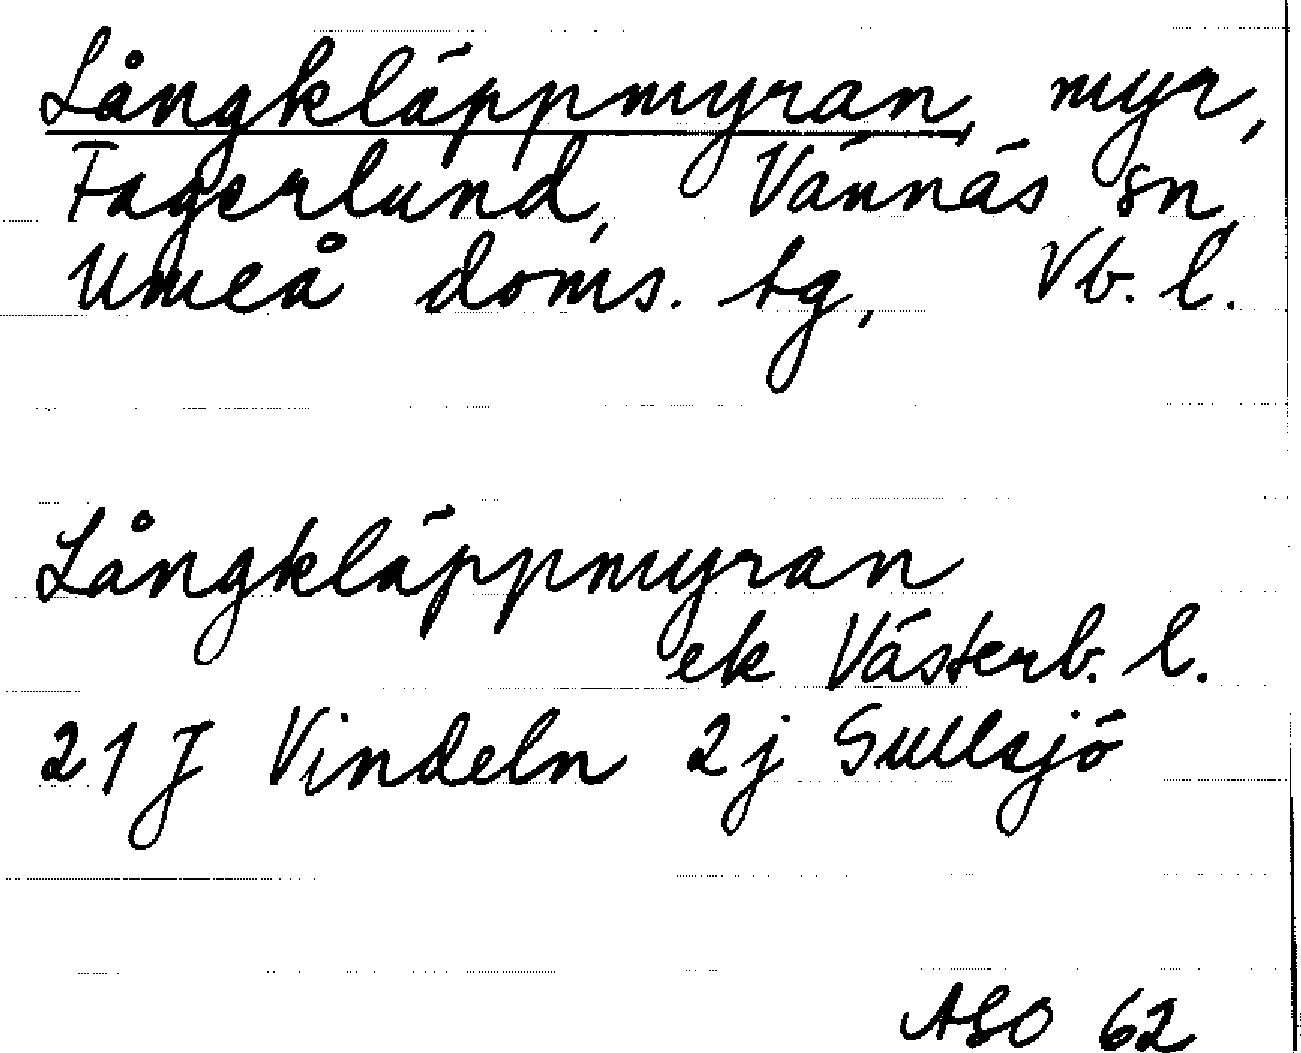 Långkläppmyran, myr,
Fagerlund, Vännäs sn
Umeå doms. tg, Vb. l.
Långkläppmyran
ek Västerb. l.
21 J Vindeln 2j Gullsjö
ASO 62